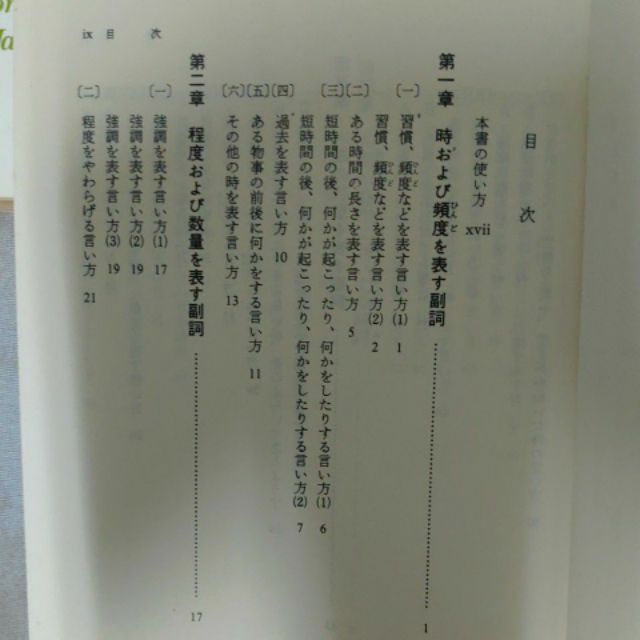 目次
本書の使い方 xvii
第一章 時および頻度を表す副詞 1
〔一〕 習慣、頻度などを表す言い方(1) 1
習慣、頻度などを表す言い方(2) 2
〔二〕 ある時間の長さを表す言い方 5
〔三〕 短時間の後、何かが起こったり、何かをしたりする言い方(1) 6
短時間の後、何かが起こったり、何かをしたりする言い方(2) 7
〔四〕 過去を表す言い方 10
〔五〕 ある物事の前後に何かをする言い方 11
〔六〕 その他の時を表す言い方 13
第二章 程度および数量を表す副詞 17
〔一〕 強調を表す言い方(1) 17
強調を表す言い方(2) 19
強調を表す言い方(3) 19
〔二〕 程度をやわらげる言い方 21
ix 目次